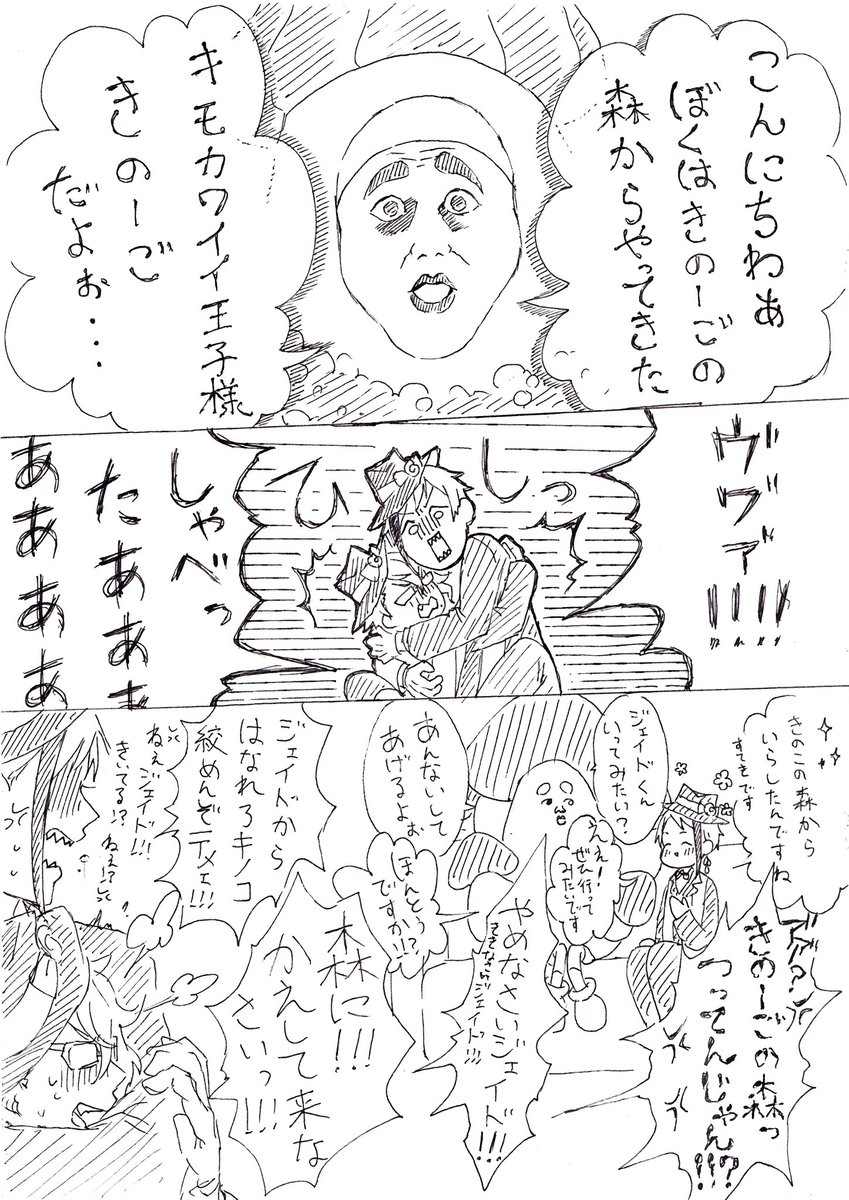 こんにちわぁ
ぼくはきのーごの
森からやってきた
キモカワイイ王子様
きのーご
だよぉ・・・
ヴヷァ!!!!
しっ
ひ
しゃべっ
たあああ
ああああ
きのこの森から
いらしたんですね
すてきです
ア?
きのーごの森っ
つってんじゃん!?!!
ジェイドくん
いってみたい?
ええ!
ぜひ行って
みたいです
やめなさいジェイド!!!
あんないして
あげるよぉ
ほんとう!?
ですか!?
森に!!!
かえして来な
さいっ!!!
ジェイドから
はなれろキノコ
絞めんぞテメェ!!!
ねぇジェイド!!!
きいてる!?ねぇ!?